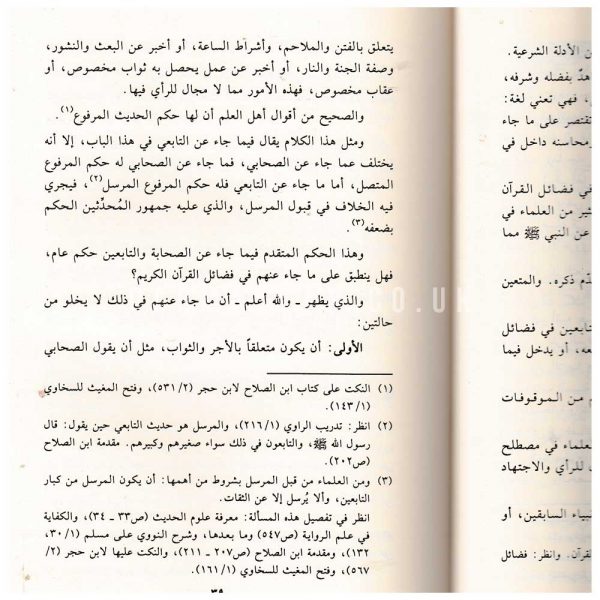 ن الأدلة الشرعية.
هدٌ بفضله وشرفه،
، فهي تعني لغة:
تقتصر على ما جاء
محاسنه داخل في
في فضائل القرآن
ثير من العلماء في
عن النبي ﷺ مما
دّم ذكره. والمتعين
تابعين في فضائل
عه، أو يدخل فيما
م من الموقوفات
لعلماء في مصطلح
ل للرأي والاجتهاد
نبياء السابقين، أو
لقرآن. وانظر: فضائل
يتعلق بالفتن والملاحم، وأشراط الساعة، أو أخبر عن البعث والنشور،
وصفة الجنة والنار، أو أخبر عن عمل يحصل به ثواب مخصوص، أو
عقاب مخصوص، فهذه الأمور مما لا مجال للرأي فيها.
والصحيح من أقوال أهل العلم أن لها حكم الحديث المرفوع(١).
ومثل هذا الكلام يقال فيما جاء عن التابعي في هذا الباب، إلا أنه
يختلف عما جاء عن الصحابي، فما جاء عن الصحابي له حكم المرفوع
المتصل، أما ما جاء عن التابعي فله حكم المرفوع المرسل(٢)، فيجري
فيه الخلاف في قبول المرسل، والذي عليه جمهور المُحدِّثين الحكم
بضعفه(٣).
وهذا الحكم المتقدم فيما جاء عن الصحابة والتابعين حكم عام،
فهل ينطبق على ما جاء عنهم في فضائل القرآن الكريم؟
والذي يظهر ـ والله أعلم ـ أن ما جاء عنهم في ذلك لا يخلو من
حالتين:
الأولى: أن يكون متعلقاً بالأجر والثواب، مثل أن يقول الصحابي
(١) النكت على كتاب ابن الصلاح لابن حجر (٥٣١/٢)، وفتح المغيث للسخاوي
(١٤٣/١).
(٢) انظر: تدريب الراوي (٢١٦/١)، والمرسل هو حديث التابعي حين يقول: قال
رسول الله ﷺ، والتابعون في ذلك سواء صغيرهم وكبيرهم. مقدمة ابن الصلاح
(ص٢٠٢).
(٣) ومن العلماء من قبل المرسل بشروط من أهمها: أن يكون المرسل من كبار
التابعين، وألا يُرسل إلا عن الثقات.
انظر في تفصيل هذه المسألة: معرفة علوم الحديث (ص٣٣ ـ ٣٤)، والكفاية
في علم الرواية (ص٥٤٧) وما بعدها، وشرح النووي على مسلم (٣٠/١،
١٣٢)، ومقدمة ابن الصلاح (ص٢٠٧ ـ ٢١١)، والنكت عليها لابن حجر (٢/
٥٦٧)، وفتح المغيث للسخاوي (١٦١/١).